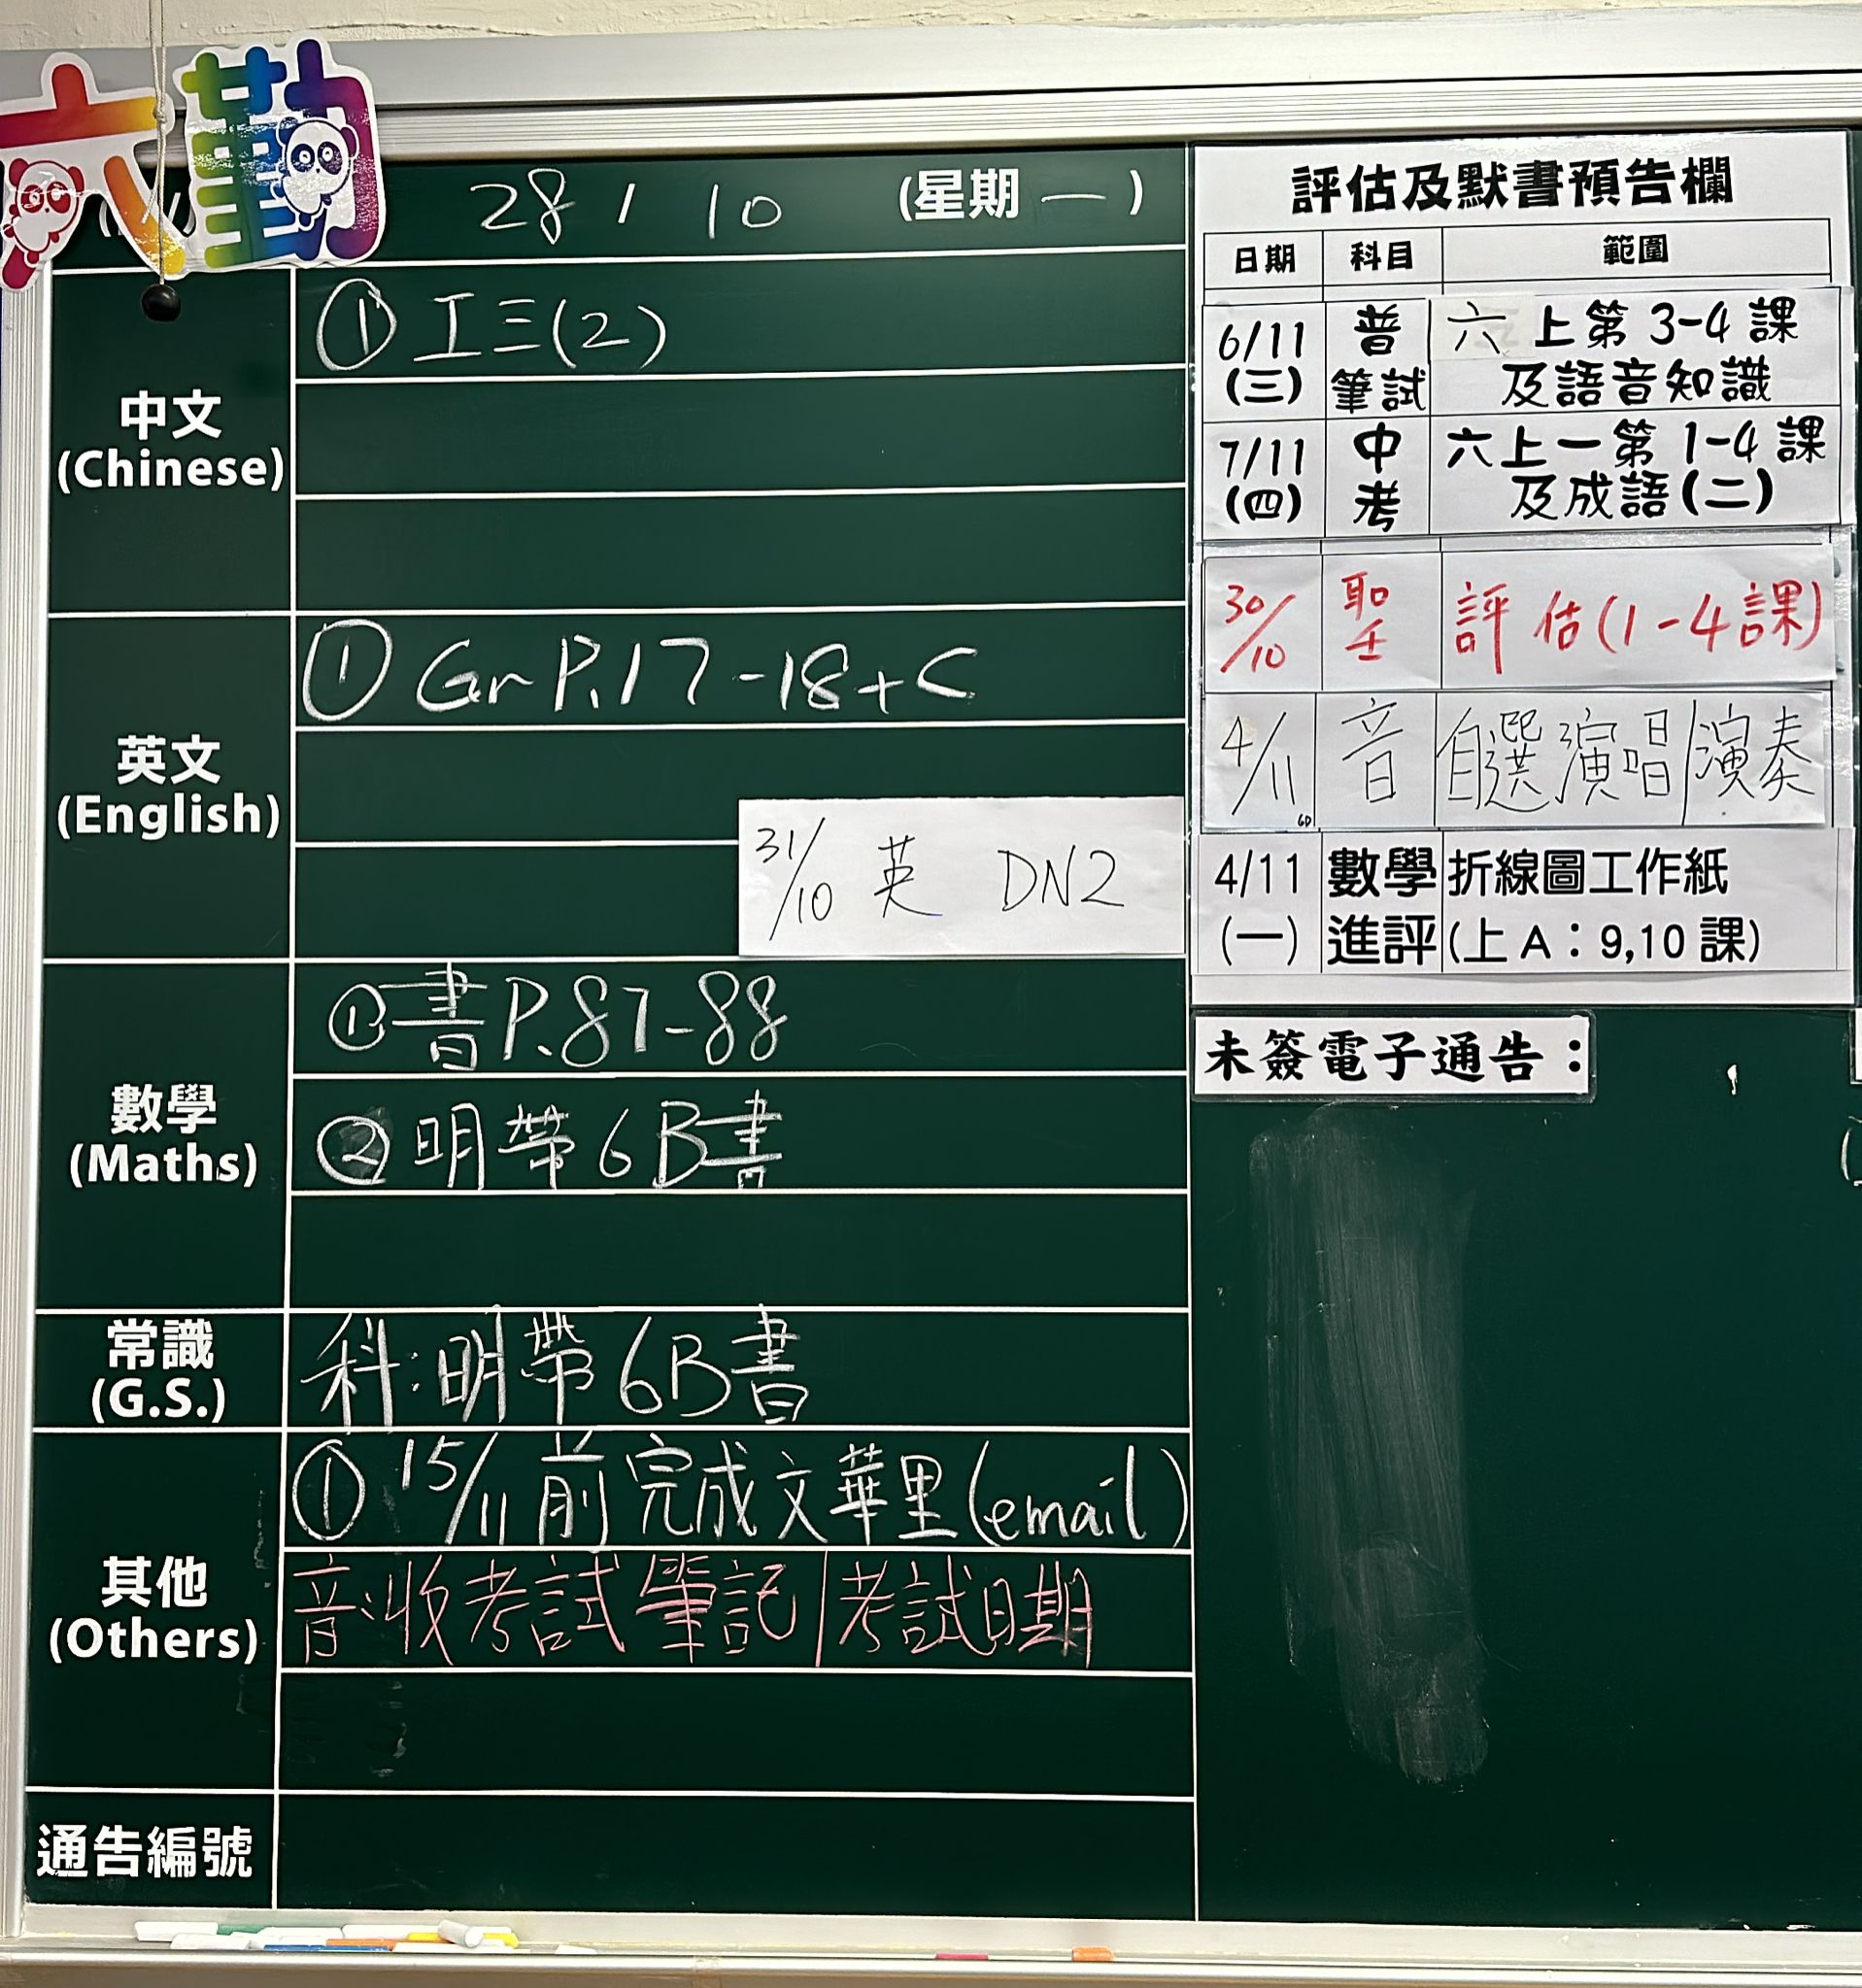 六勤
28 / 10 (星期一)
中文
(Chinese)
① 工三(2)
英文
(English)
① Gr P.17-18+C
31/10 英 DN2
數學
(Maths)
① 書 P.87-88
② 明帶6B書
常識
(G.S.)
科:明帶6B書
其他
(Others)
① 15/11 前完成文華里(email)
音:收考試筆記/考試日期
通告編號
評估及默書預告欄
日期 科目 範圍
6/11 普 六上第3-4課
(三) 筆試 及語音知識
7/11 中 六上一第1-4課
(四) 考 及成語(二)
30/10 聖 評估(1-4課)
4/11 音 自選演唱/演奏
4/11 數學 折線圖工作紙
(一) 進評 (上A:9,10課)
未簽電子通告: